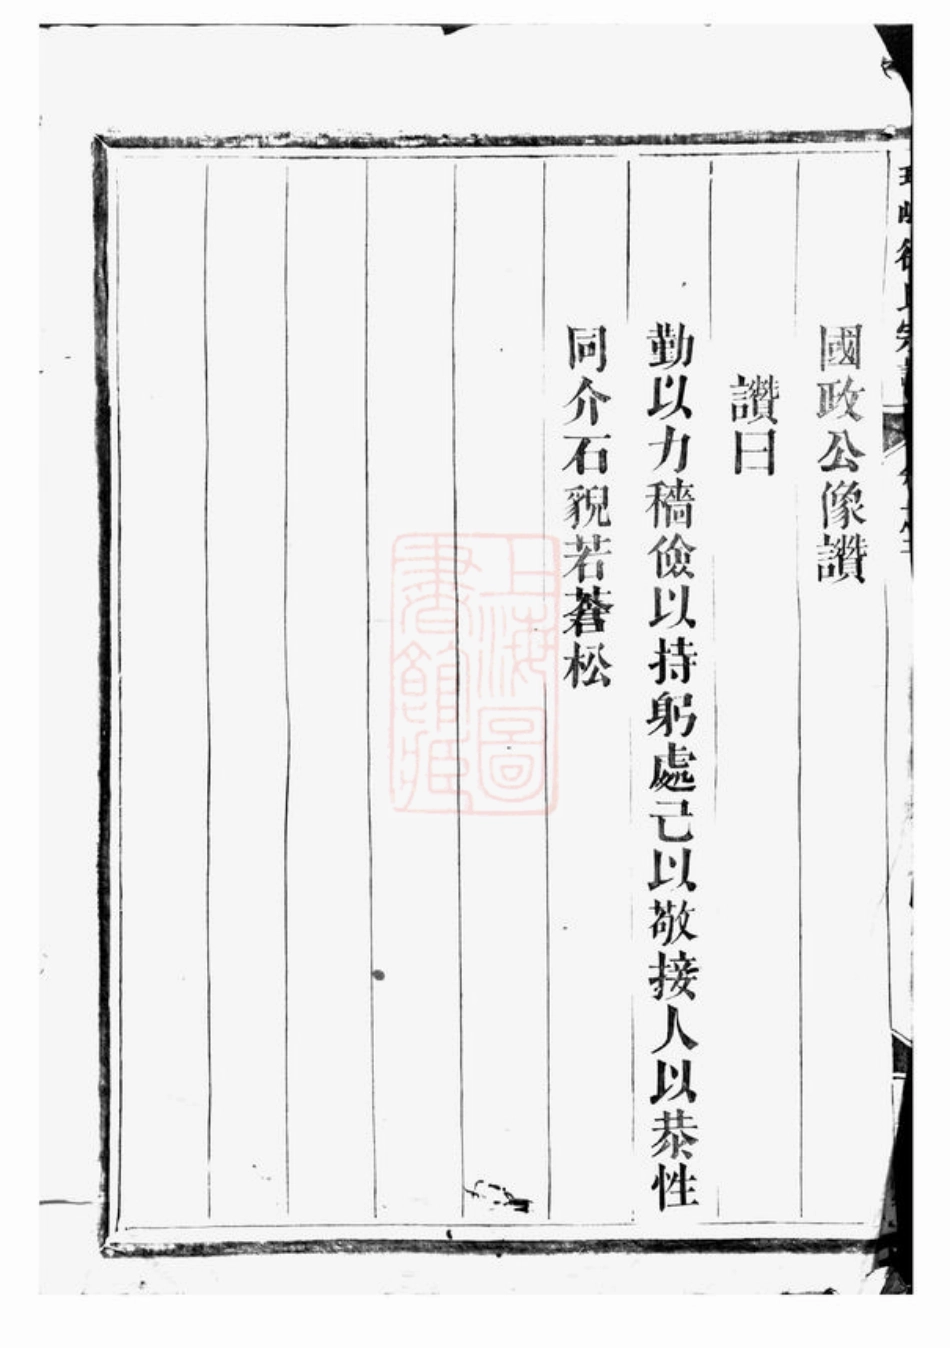 國政公像讚
讚曰
勤以力穡儉以持躬處己以敬接人以恭性
同介石貌若蒼松
上海圖
書館藏